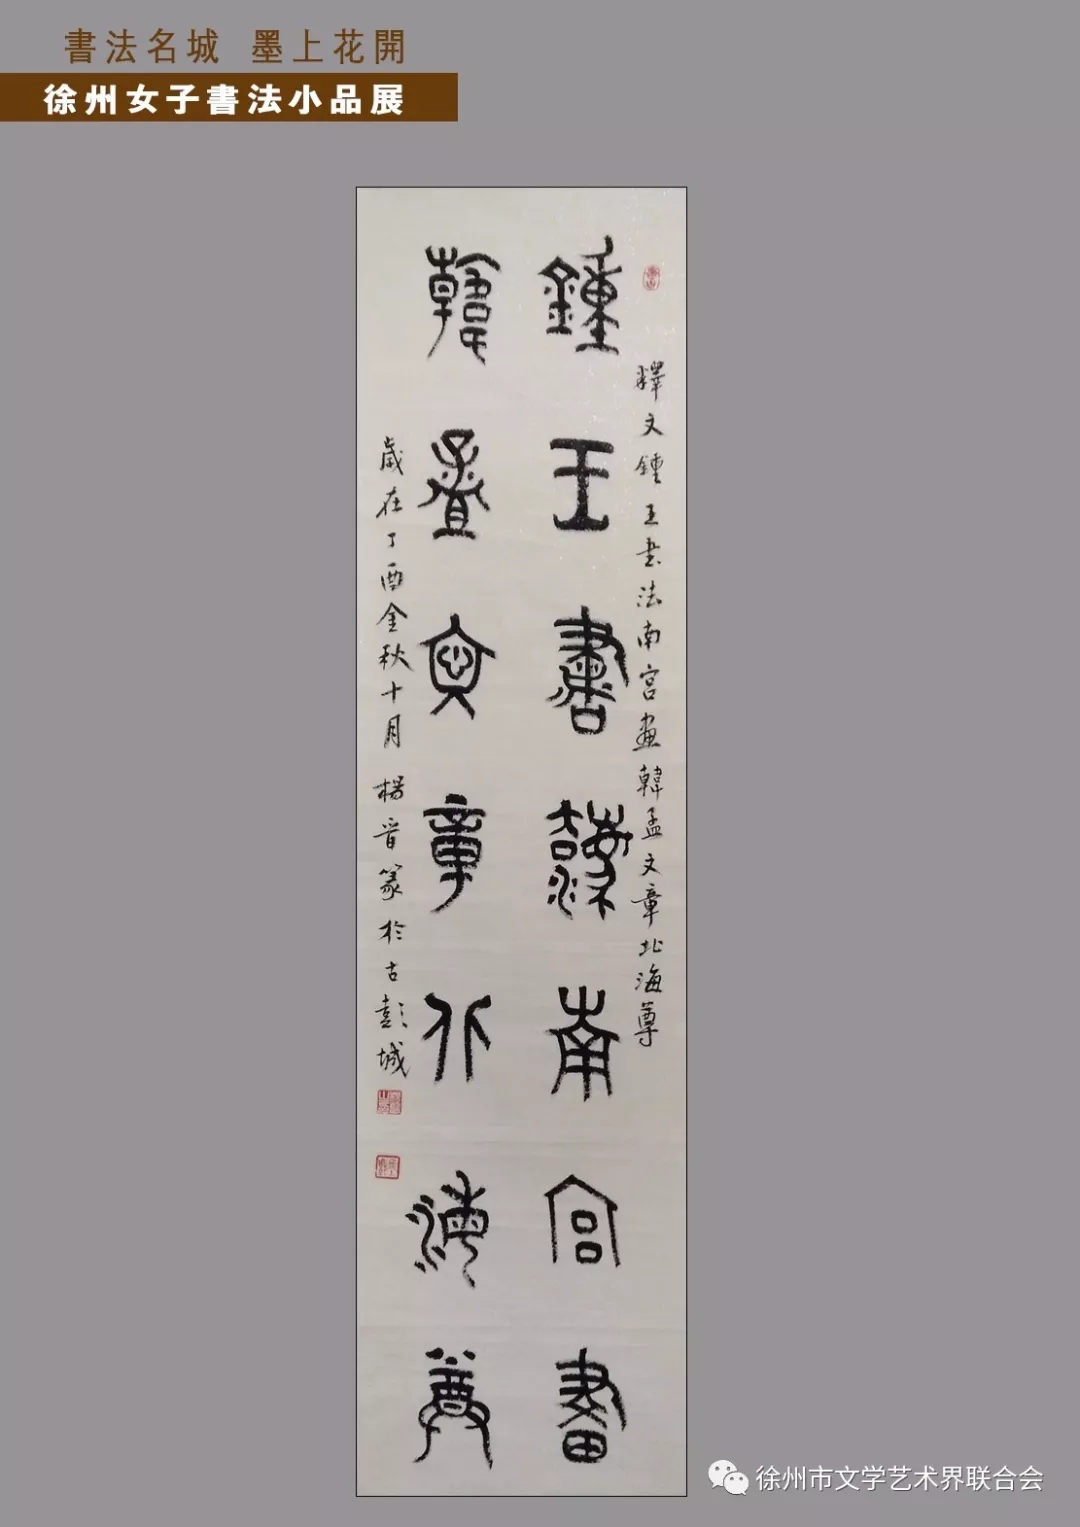 書法名城 墨上花開
徐州女子書法小品展
釋文鍾王书法南宫畫韓孟文章北海尊
鍾王書灋南宮畫
韓孟文章北海尊
歲在丁酉金秋十月楊晋篆於古彭城
徐州市文学艺术界联合会